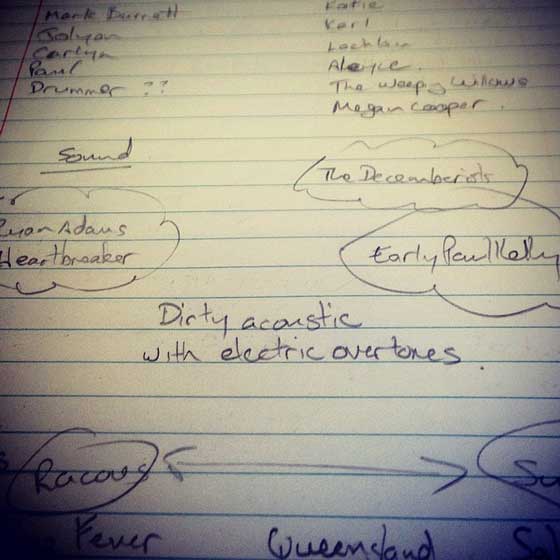 Mark Burnett
Jolyon
Carlyn
Paul
Drummer ??
Katie
Karl
Lachlan
Aleyce.
The Weeping Willows
Megan Cooper.
Sound
The Decemberists
Ryan Adams
Heartbreaker
Early Paul Kelly
Dirty acoustic
with electric overtones.
Racous
Fever
Queensland